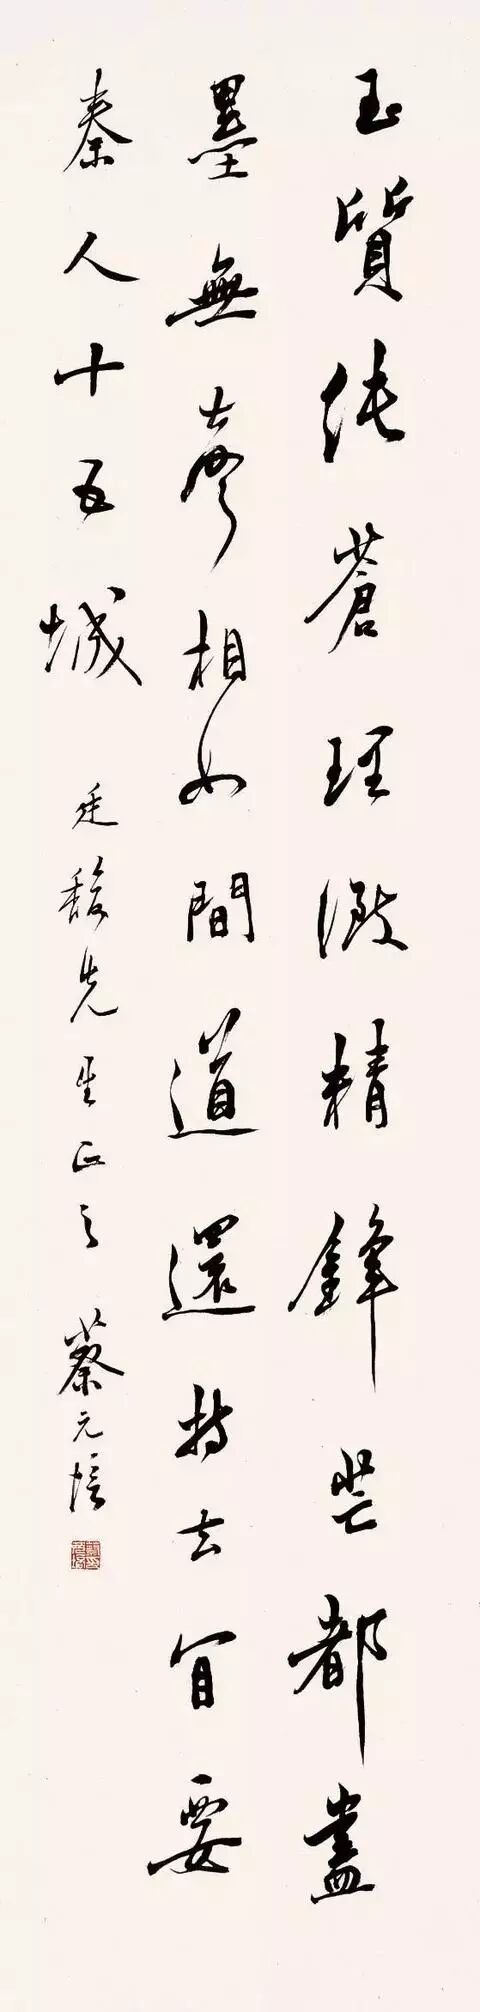 玉質純蒼理緻精鋒芒都盡
墨無聲相如間道還持去肯要
秦人十五城
廷馥先生正之 蔡元培